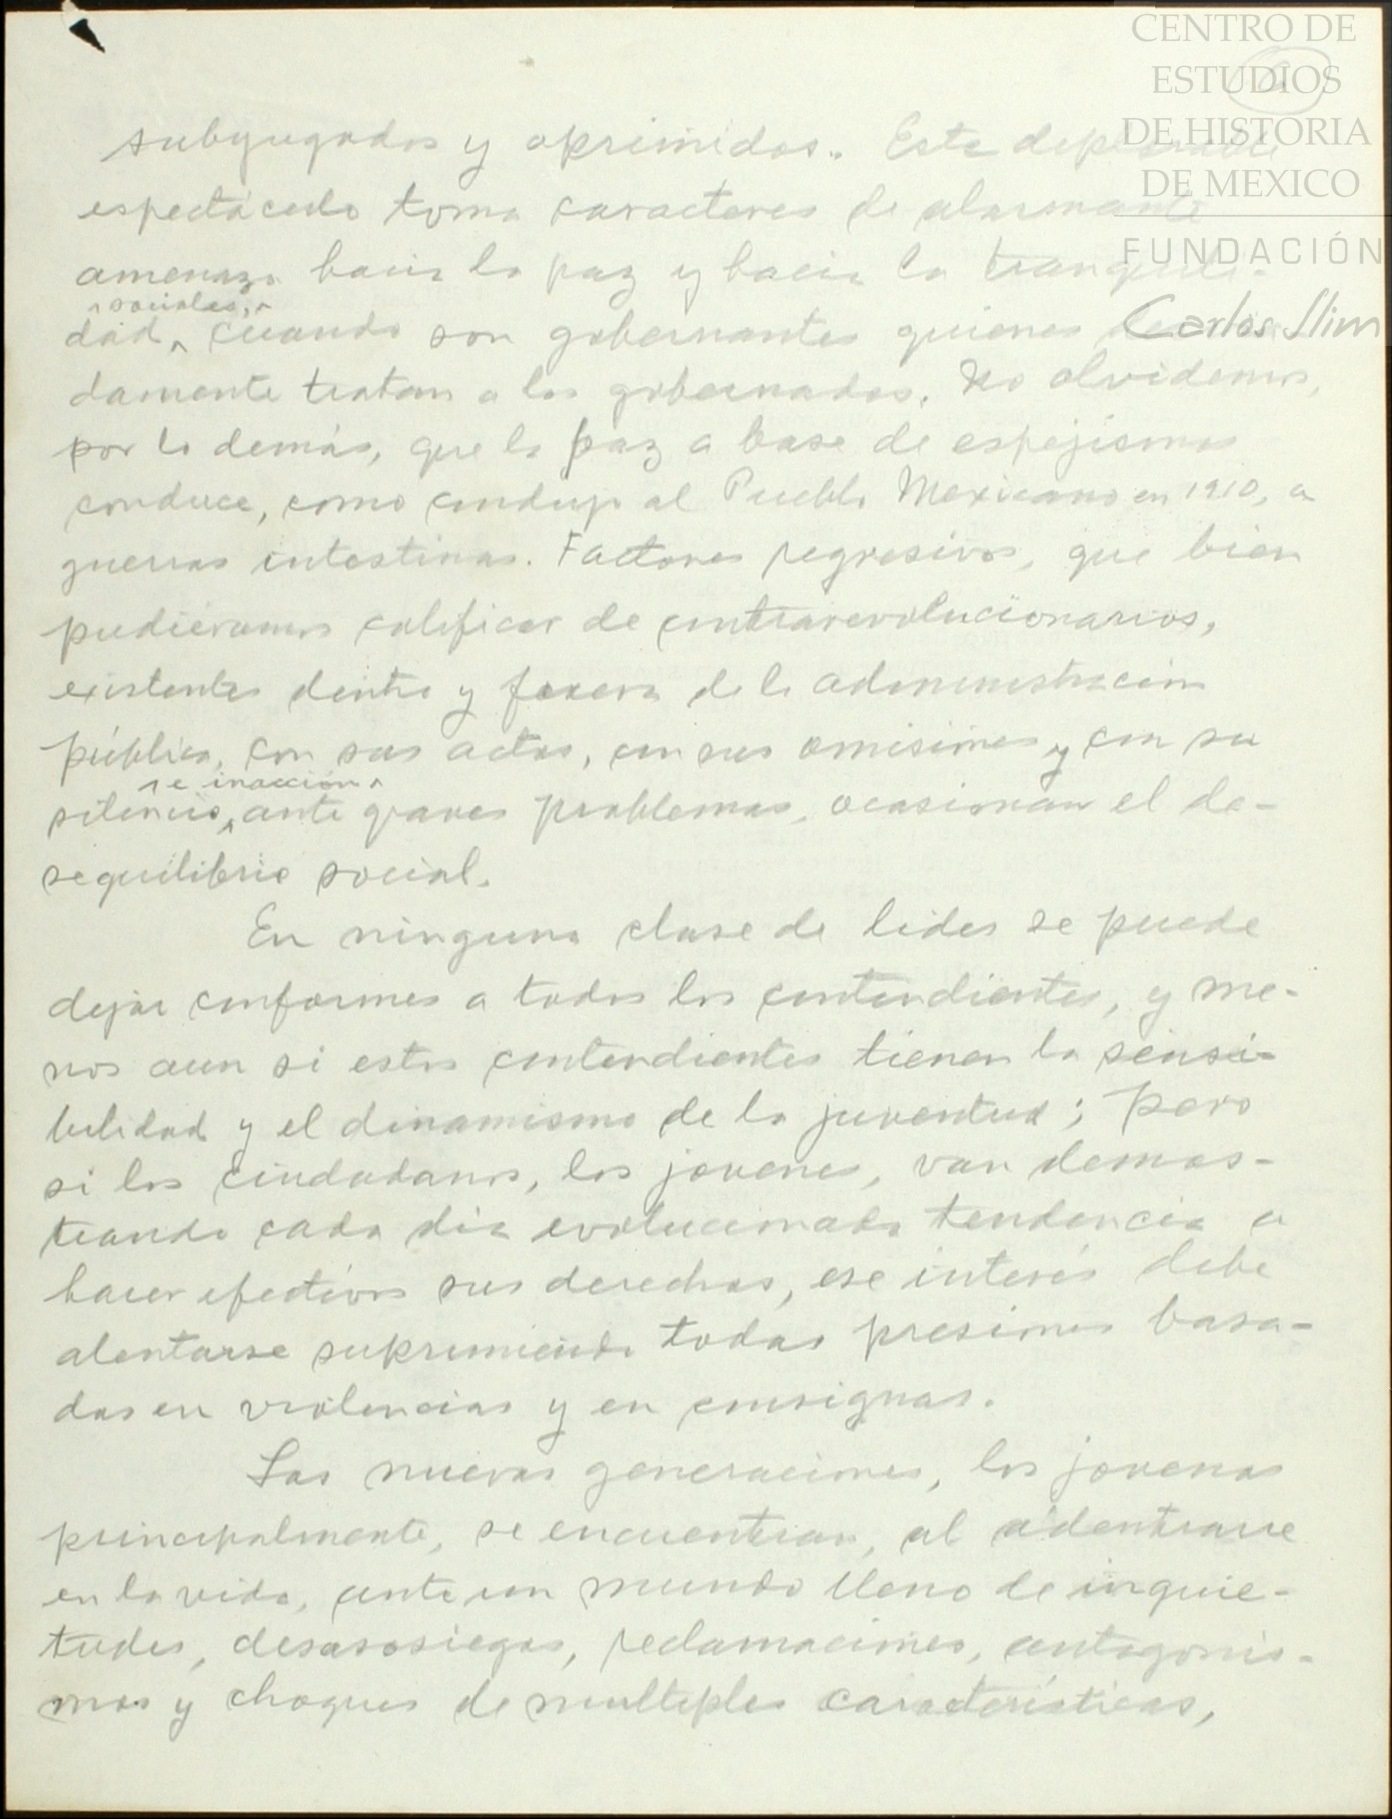 CENTRO DE
ESTUDIOS
DE HISTORIA
DE MEXICO
FUNDACIÓN
Carlos Slim
subyugados y oprimidos. Este deplorable
espectáculo toma caracteres de alarmante
amenaza hacia la paz y hacia la tranquili-
sociales,
dad, cuando son gobernantes quienes
damente tratan a los gobernados. No olvidemos,
por lo demás, que la paz a base de espejismos
conduce, como condujo al Pueblo Mexicano en 1910, a
guerras intestinas. Factores regresivos, que bien
pudiéramos calificar de contrarevolucionarios,
existentes dentro y fuera de la administración
pública, con sus actos, con sus omisiones y con su
e inacción
silencio, ante graves problemas, ocasionan el de-
sequilibrio social.
En ninguna clase de lides se puede
dejar conformes a todos los contendientes, y me-
nos aun si estos contendientes tienen la sensi-
bilidad y el dinamismo de la juventud; pero
si los ciudadanos, los jovenes, van demos-
trando cada dia evolucionada tendencia a
hacer efectivos sus derechos, ese interés debe
alentarse suprimiendo todas presiones basa-
das en violencias y en consignas.
Las nuevas generaciones, los jovenes
principalmente, se encuentran, al adentrarse
en la vida, ante un mundo lleno de inquie-
tudes, desasosiegos, reclamaciones, antagonis-
mos y choques de multiples características,